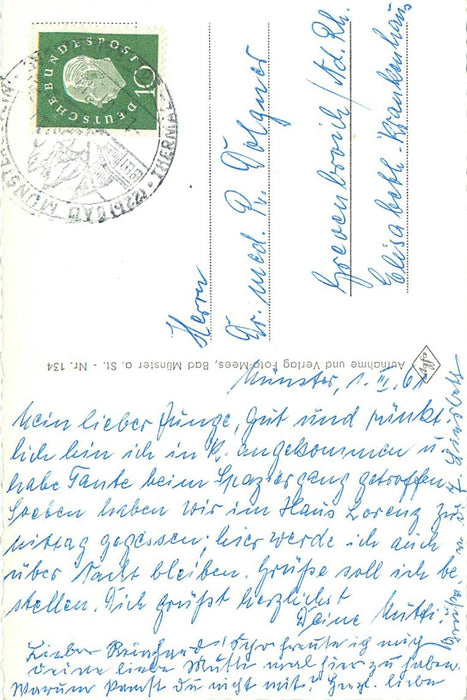 DEUTSCHE BUNDESPOST
10
(22b) BAD MÜNSTER
THERMAL
Herrn
Dr. med. R. Dolgner
Grevenbroich/Nd. Rh.
Elisabeth-Krankenhaus
Aufnahme und Verlag Foto-Mees, Bad Münster a. St. - Nr. 134
Münster, 1. III. 61
Mein lieber Junge, gut und pünkt-
lich bin ich in K. angekommen u.
habe Tante beim Spaziergang getroffen.
Soeben haben wir im Haus Lorenz zu
Mittag gegessen; hier werde ich auch
über Nacht bleiben. Grüße soll ich be-
stellen. Dich grüßt herzlichst
Deine Mutti.
Grüße
Lieber Reinhard! So freute ich mich
deine liebe Mutti mal hier zu haben.
Warum kannst du nicht mit? Herzl. liebe